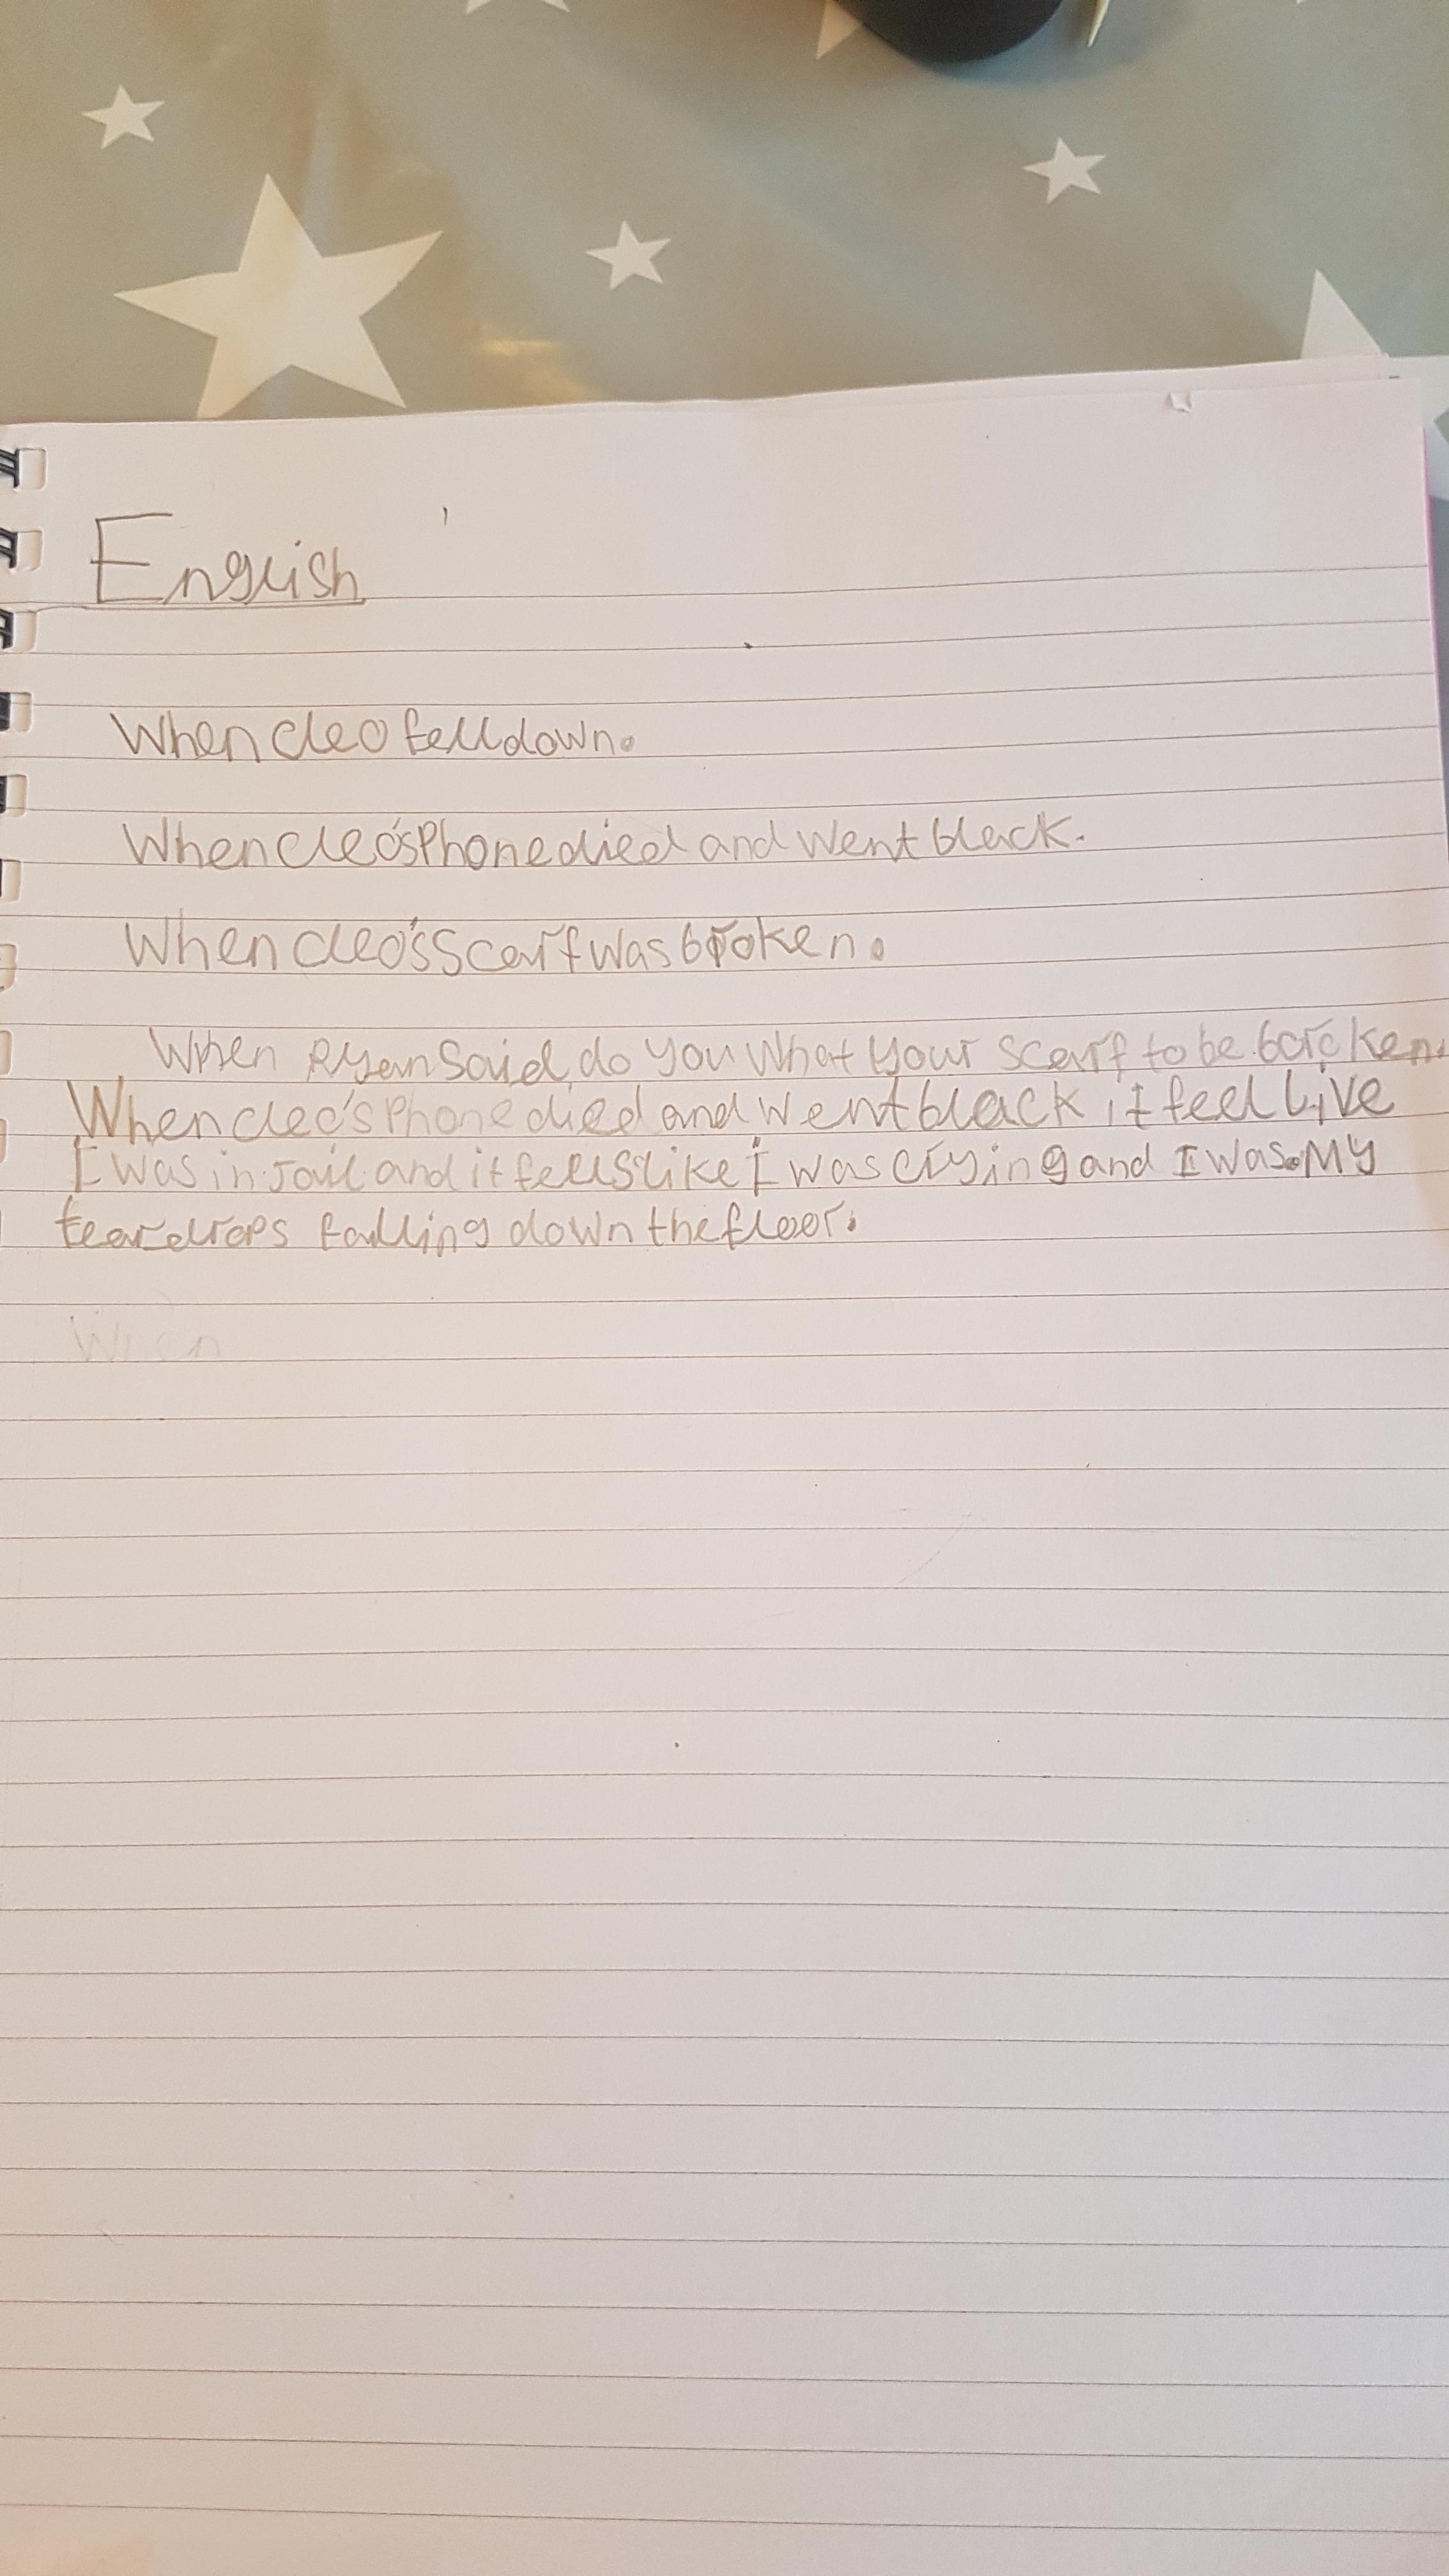 English
When cleo fell down.
When cleo's Phone died and went black.
When cleo's scarf was broken.
When Ryan Said, do you what your scarf to be boicken.
When cleo's Phone died and went black it feel Live
I was in Jail and it feells like I was crying and I was. My
tear drops falling down the floor.
When